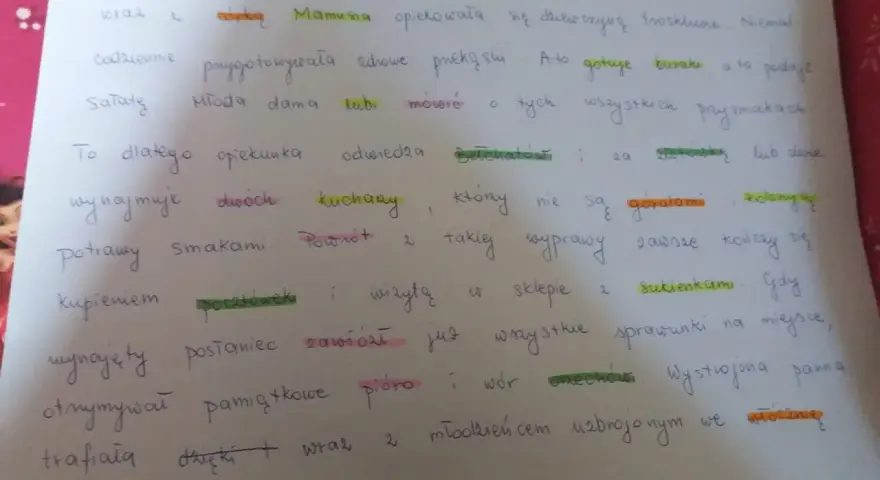 wraz z córką Mamusia opiekowała się dziewczyną troskliwie. Niemal
codziennie przygotowywała zdrowe przekąski. A to gotuje buraki a to podaje
sałatę Młoda dama lubi mówić o tych wszystkich przysmakach
To dlatego opiekunka odwiedza i za lub dwie
wynajmuje dwóch kucharzy, którzy nie są góralami i
potrawy smakami Powrót z takiej wyprawy zawsze kończy się
kupieniem pocztówek i wizytą w sklepie z sukienkami. Gdy
wynajęty posłaniec zawiózł już wszystkie sprawunki na miejsce,
otrzymywał pamiątkowe pióro i wór orzechów Wystrojona panna
trafiała dzięki t wraz z młodzieńcem uzbrojonym we włócznię